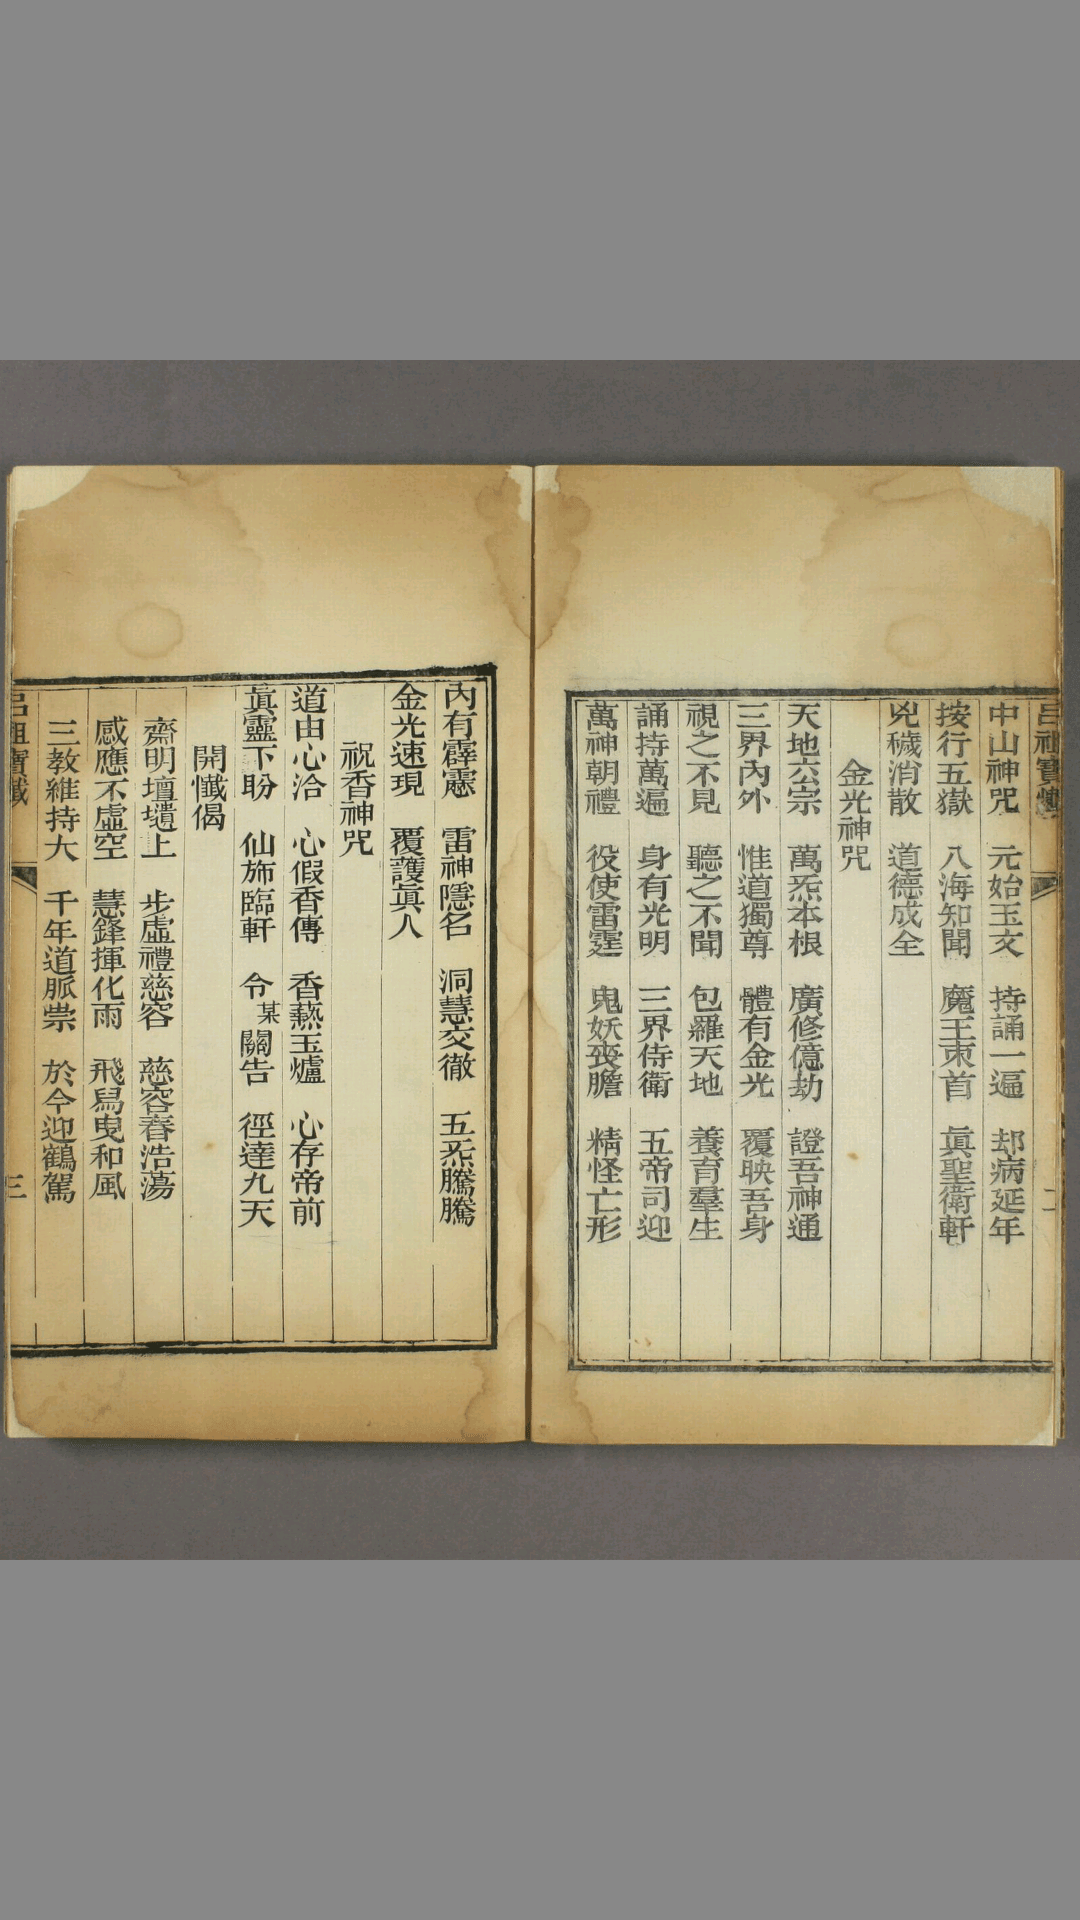 呂祖寶懺
二
中山神咒 元始玉文 持誦一遍 却病延年
按行五嶽 八海知聞 魔王束首 眞聖衛軒
兇穢消散 道德成全
金光神咒
天地六宗 萬炁本根 廣修億劫 證吾神通
三界內外 惟道獨尊 體有金光 覆映吾身
視之不見 聽之不聞 包羅天地 養育羣生
誦持萬遍 身有光明 三界侍衛 五帝司迎
萬神朝禮 役使雷霆 鬼妖喪膽 精怪亡形
內有霹靂 雷神隱名 洞慧交徹 五炁騰騰
金光速現 覆護眞人
祝香神咒
道由心洽 心假香傳 香爇玉爐 心存帝前
眞靈下盼 仙斾臨軒 令某關告 徑達九天
開懺偈
齋明壇壝上 步虛禮慈容 慈容春浩蕩
感應不虛空 慧鋒揮化雨 飛舄曳和風
三教維持大 千年道脈崇 於今迎鶴駕
呂祖寶懺
三